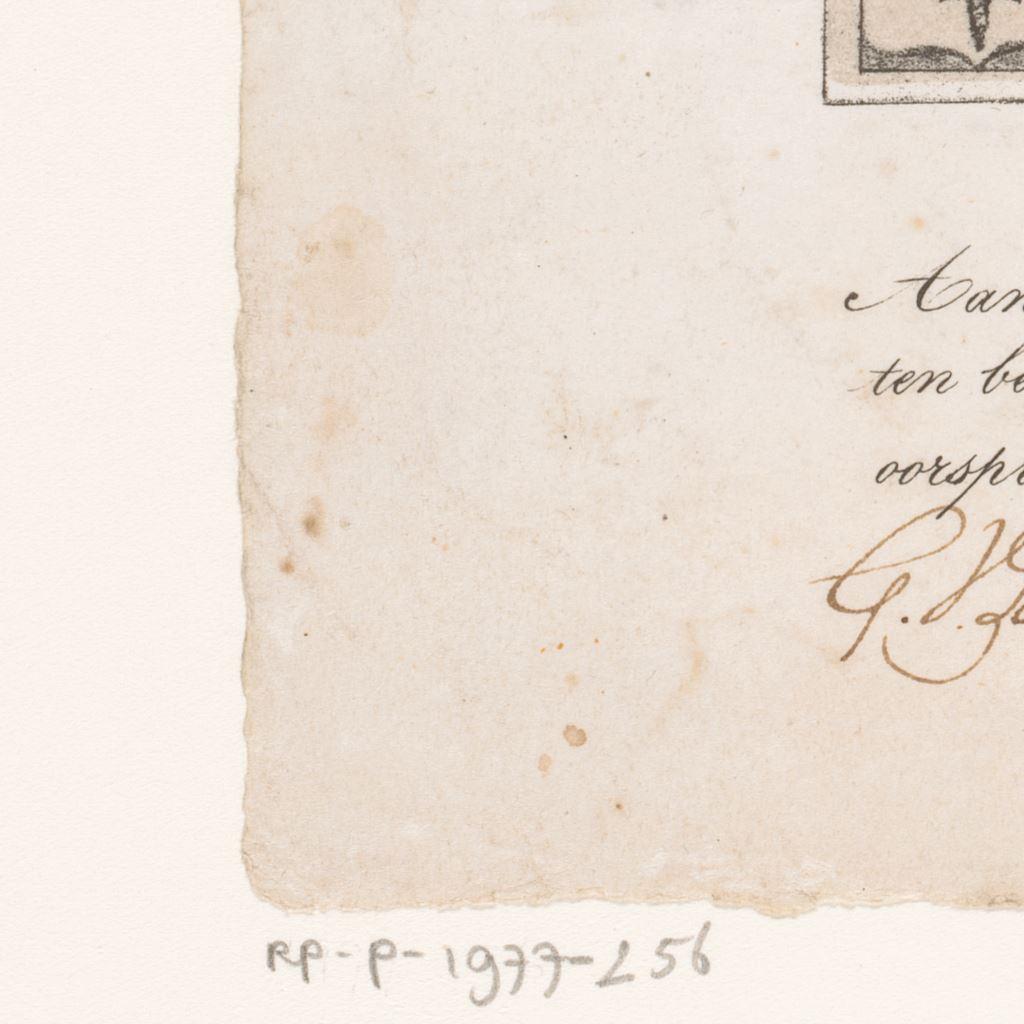 Aan
ten be
oorspr
G.
RP-P-1977-256